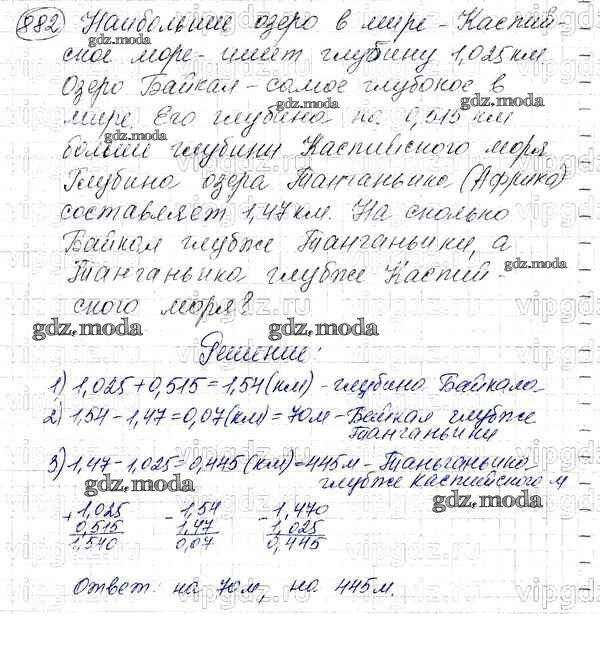 882 Наибольшее озеро в мире - Каспий-
ское море - имеет глубину 1,025 км
gdz.moda
Озеро Байкал - самое глубокое в
gdz.moda gdz.moda
мире. Его глубина на 0,515 км
gdz.moda
больше глубины Каспийского моря
Глубина озера Танганьика (Африка)
gdz.moda
составляет 1,47 км. На сколько
Байкал глубже Танганьики, а
gdz.moda
Танганьика глубже Каспий-
gdz.moda
ского моря?
gdz.moda gdz.moda
Решение:
1) 1,025 + 0,515 = 1,54 (км) - глубина Байкала
2) 1,54 - 1,47 = 0,07 (км) = 70м - Байкал глубже
Танганьики
3) 1,47 - 1,025 = 0,445 (км) = 445м - Таньганьика
глубже каспийского м
gdz.moda gdz.moda
+ 1,025 - 1,54 - 1,470
0,515 1,47 1,025
1,540 0,07 0,445
Ответ: на 70м, на 445м.
vipgdz.ru